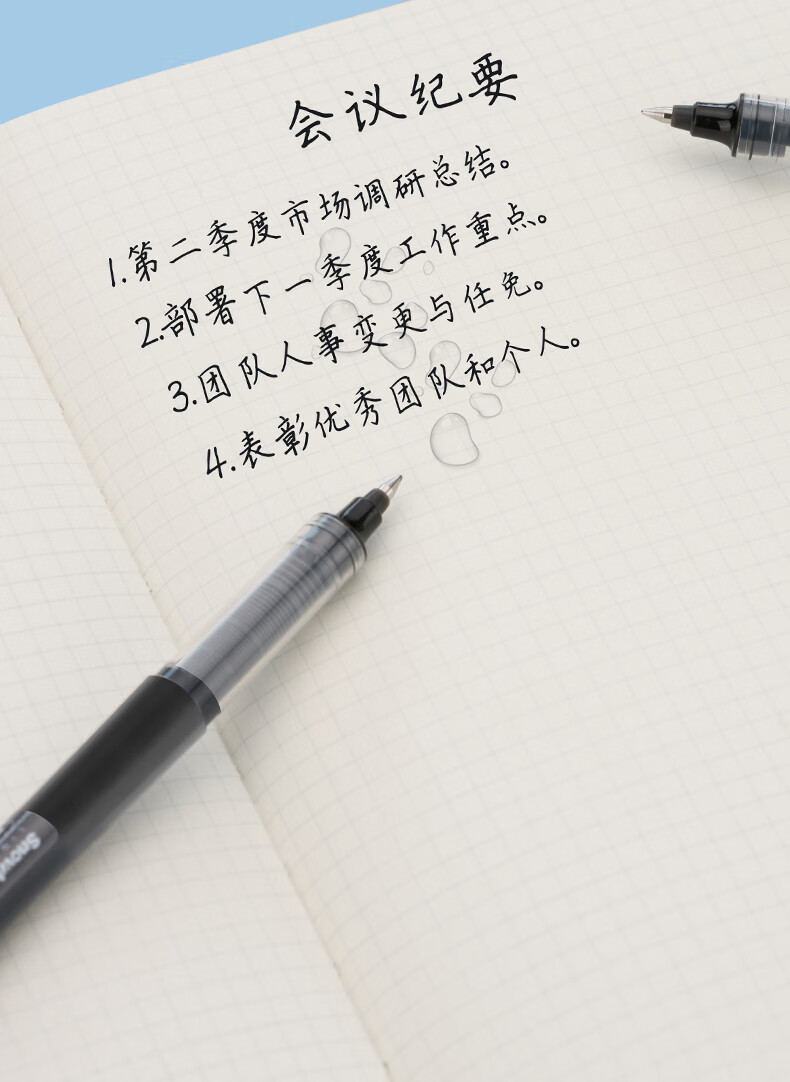 会议纪要
1.第二季度市场调研总结。
2.部署下一季度工作重点。
3.团队人事变更与任免。
4.表彰优秀团队和个人。